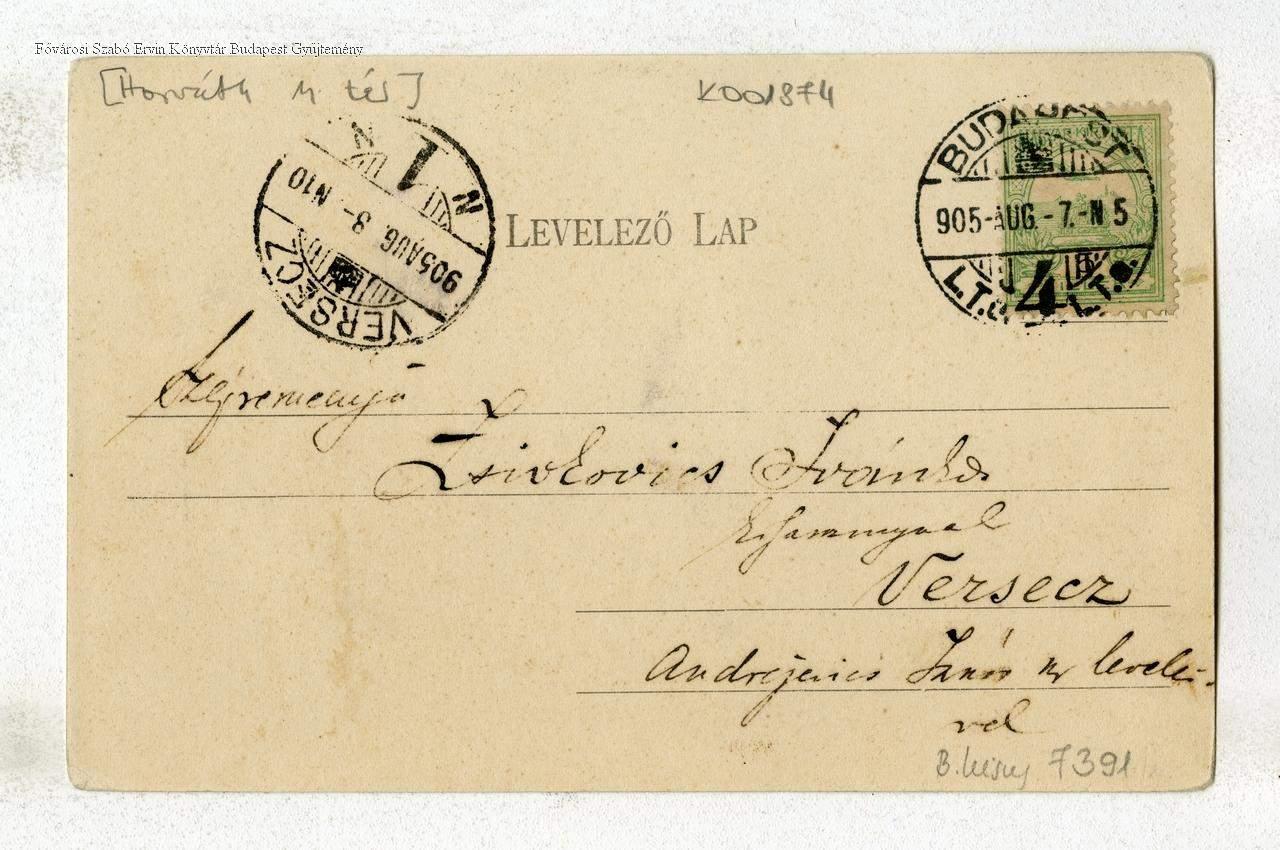 Fővárosi Szabó Ervin Könyvtár Budapest Gyűjtemény
[Horváth M tér]
K001874
BUDAPEST
905-AUG.-7.-N 5
L.T.
4
L.T.
N
1
N
905 AUG. 8- N10
VERSECZ
LEVELEZŐ LAP
Zsivkovics Ivánka
Versecz
Andrejevics János úr levelé-
vel
7391